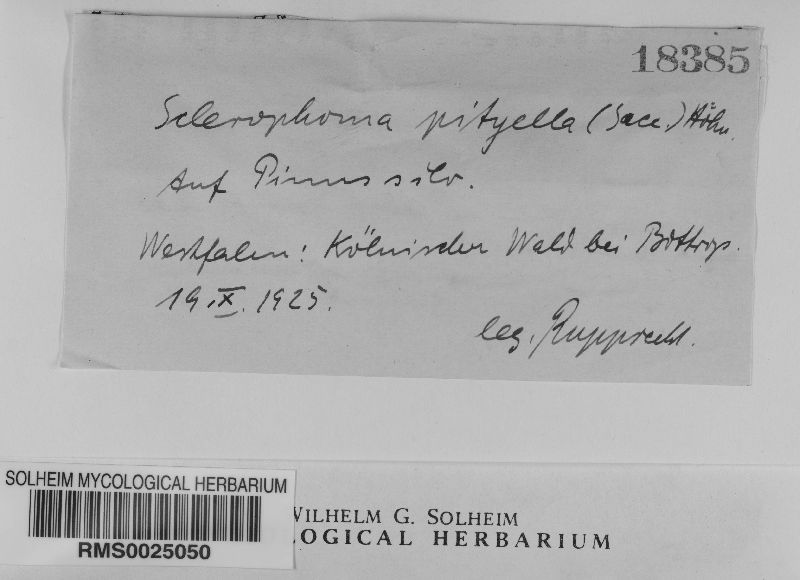 18385
Sclerophoma pityella (Sacc.) Höhn.
Auf Pinus silv.
Westfalen: Kölnischer Wald bei Bottrop.
19.IX.1925.
leg. Rupprecht.
SOLHEIM MYCOLOGICAL HERBARIUM
RMS0025050
WILHELM G. SOLHEIM
LOGICAL HERBARIUM